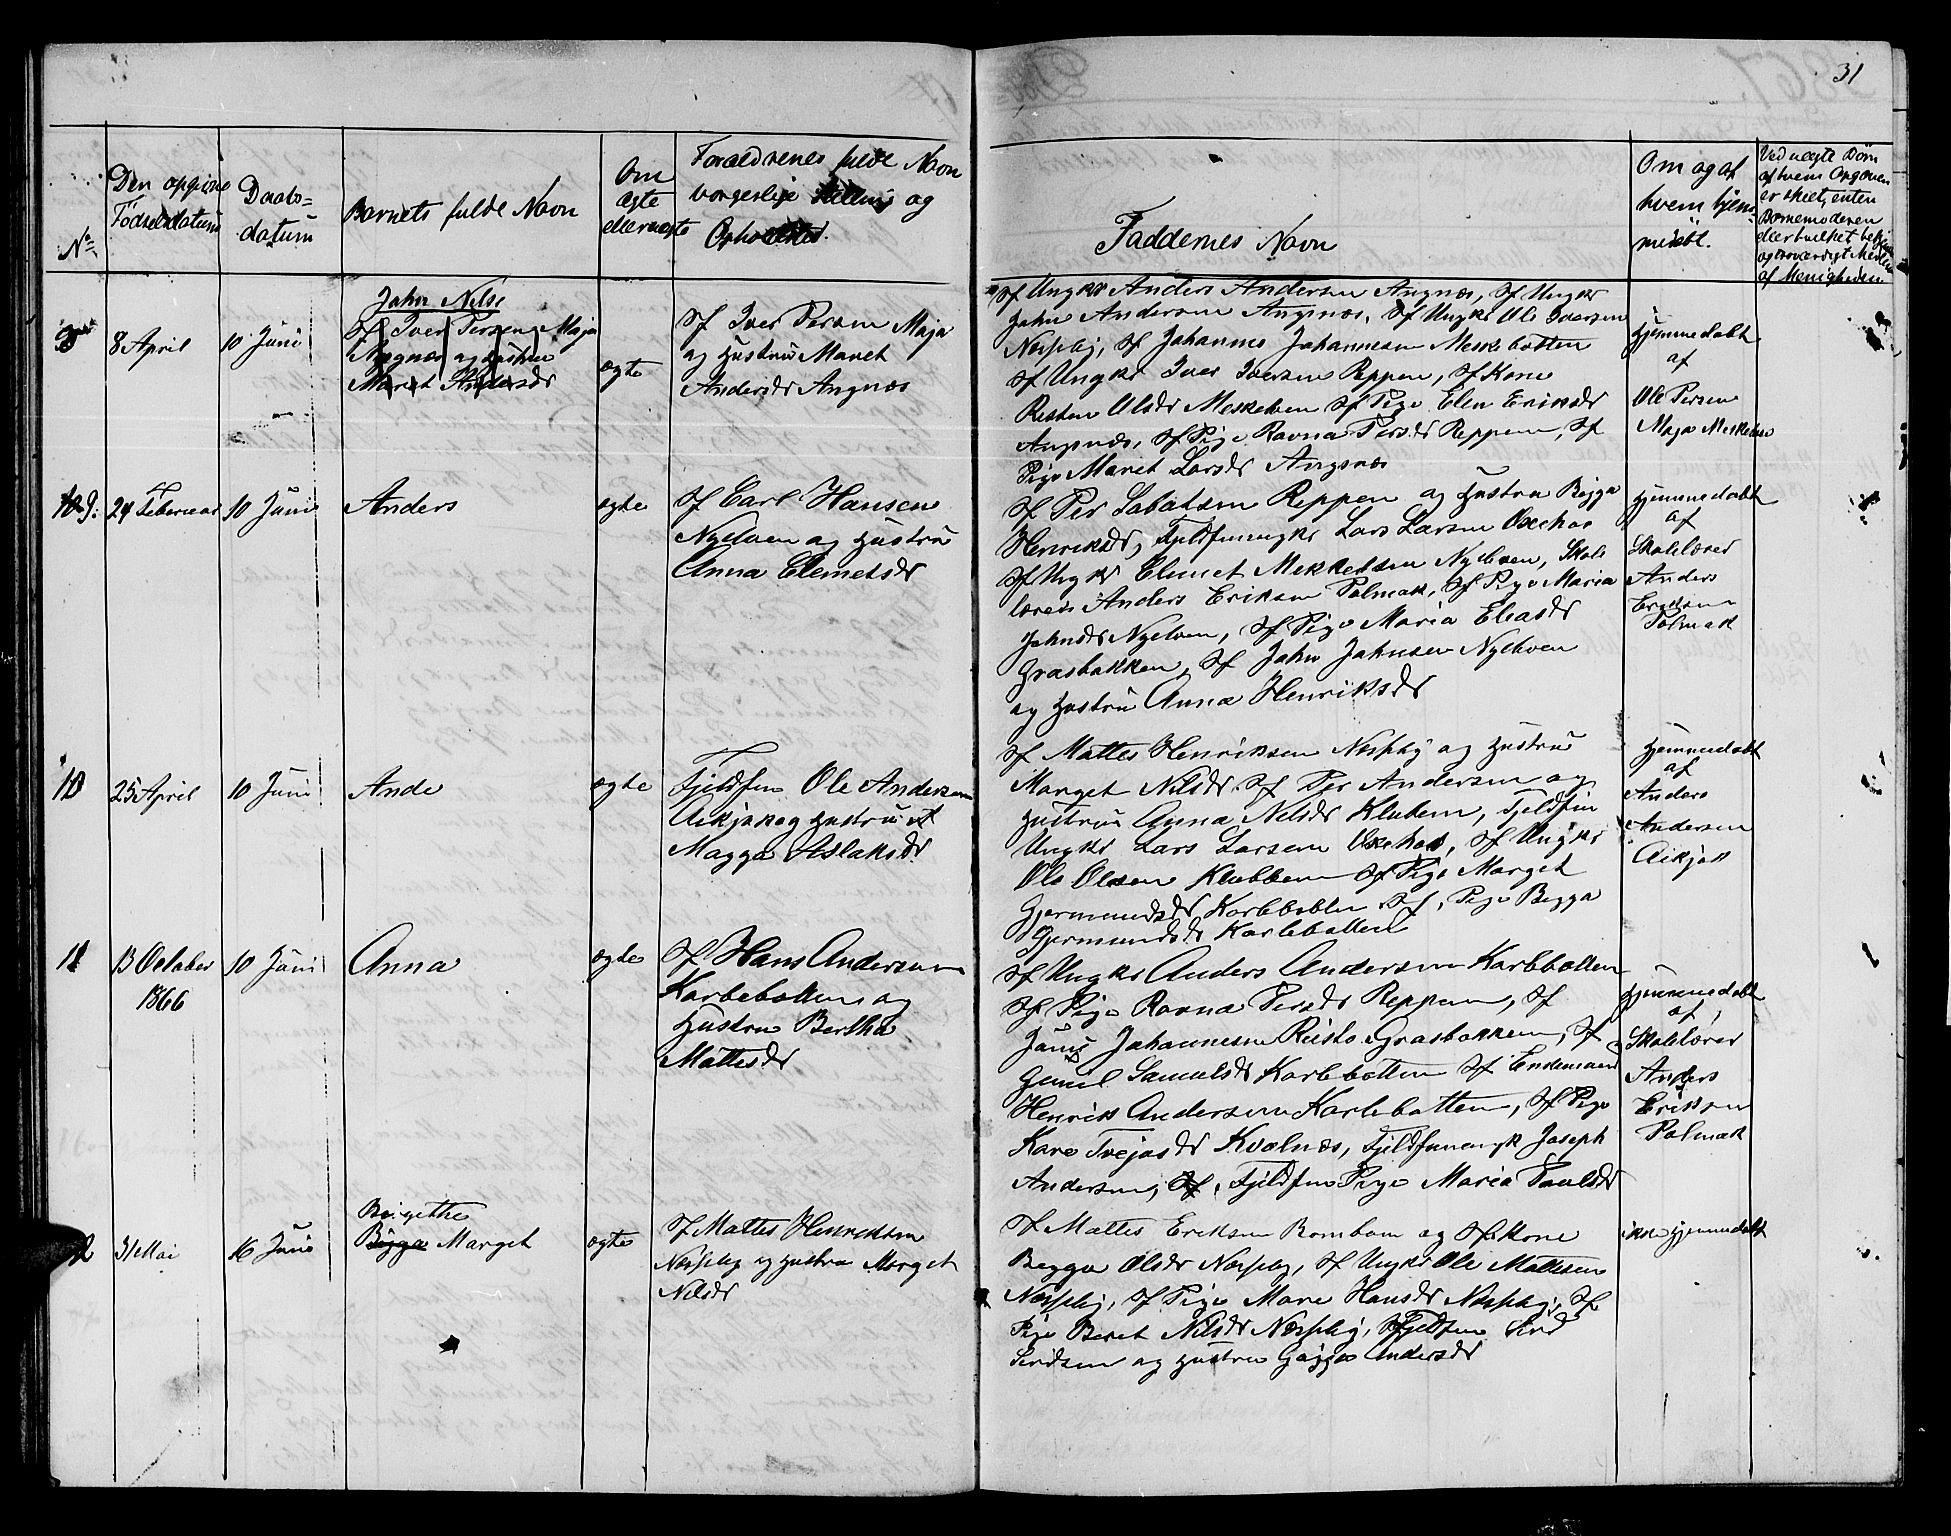 31
No
Den opgivne
Fødselsdatum
Daabs=
datum
Barnets fulde Navn
Om
ægte
eller uægte
Forældrenes fulde Navn
borgerlige Stilling og
Opholdsted.
Faddernes Navn
Om og af
hvem hjem=
medøbt.
Ved uægte Børn
af hvem Opgaven
er skeet, enten
Barnemoderen
eller hvilket
og troværdigt Medlem
af Menigheden
8
8 April
10 Juni
John Nilse
Sf Iver Persen Maja
Angnæs og Hustru
Maret Andersdr
ægte
Sf Iver Persen Maja
og Hustru Maret
Andersdr Angnæs
Sf Ungkr Anders Andersen Angnæs, Sf Ungkr
John Andersen Angnæs, Sf Ungkr Ole Iversen
Næsseby, Sf Johannes Johannesen Meskebotten
Sf Ungkr Iver Iversen Reppen, Sf Kone
Risten Olsdr Meskelven Sf Pige Elen Eriksdr
Angnæs, Sf Pige Ravna Persdr Reppen, Sf
Pige Maret Larsdr Angnæs
Hjemmedøbt
af
Ole Persen
Maja Meskelven
9.
24 Februar
10 Juni
Anders
ægte
Sf Carl Hansen
Nyelven og Hustru
Anna Clemetsdr
Sf Per Sabasen Reppen og Hustru Bigga
Henriksdr, Fjeldfinungkr Lars Larsen
Sf Ungkr Clemet Mekkelsen Nyelven, Skole
lærer Anders Eriksen Polmak, Sf Pige Maria
Johnsdr Nyelven, Sf Pige Maria Eliasdr
Græsbakken, Sf John Johnsen Nyelven
og Hustru Anna Henriksdr
Hjemmedøbt
af
Skolelærer
Anders
Eriksen
Polmak
10
25 April
10 Juni
Ande
ægte
Fjeldfin Ole Andersen
Aikjok og Hustru
Magga Aslaksdr
Sf Mattes Henriksen Næsseby og Hustru
Marget Nilsdr, Sf Per Andersen og
Hustru Anna Nilsdr Kluben, Fjeldfin
Ungkr Lars Larsen, Sf Ungkr
Ole Olsen Klubben Sf Pige Marget
Gjermundsdr Karlebotten Sf, Pige Bigga
Gjermundsdr Karlebotten
Hjemmedøbt
af
Anders
Andersen
Aikjok
11
13 October
1866
10 Juni
Anna
ægte
Sf Hans Andersen
Karlebotten og
Hustru Bertha
Mattesdr
Sf Ungkr Anders Andersen Karlebotten
Sf Pige Ravna Persdr Reppen, Sf
Johannesen Risto Græsbakken, Sf
Samuelsdr Karlebotten Sf Enkemand
Henrik Andersen Karlebotten, Sf Pige
Kare Kvalnæs, Fjeldfinungk Joseph
Andersen, Sf, Fjeldfin Pige Maria Paulsdr
Hjemmedøbt
af
Skolelærer
Anders
Eriksen
Polmak
12
31 Mai
16 Juni
Birgethe
Bigga Marget
ægte
Sf Mattes Henriksen
Næsseby og Hustru Marget
Nilsdr
Sf Mattes Eriksen Bomban og Sf Kone
Begga Olsdr Næsseby, Sf Ungkr Ole Mattesen
Næsseby, Sf Pige Mare Hansdr Næsseby, Sf
Pige Beret Nilsdr Næsseby, Fjeldfin
og Hustru Gagga Andersdr
ikke hjemmedøbt